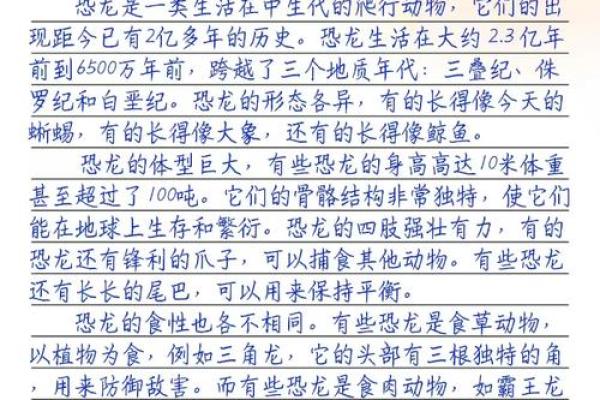 恐龙是一类生活在中生代的爬行动物，它们的出
现距今已有2亿多年的历史。恐龙生活在大约2.3亿年
前到6500万年前，跨越了三个地质年代：三叠纪、侏
罗纪和白垩纪。恐龙的形态各异，有的长得像今天的
蜥蜴，有的长得像大象，还有的长得像鲸鱼。
恐龙的体型巨大，有些恐龙的身高高达10米体重
甚至超过了100吨。它们的骨骼结构非常独特，使它们
能在地球上生存和繁衍。恐龙的四肢强壮有力，有的
恐龙还有锋利的爪子，可以捕食其他动物。有些恐龙
还有长长的尾巴，可以用来保持平衡。
恐龙的食性也各不相同。有些恐龙是食草动物，
以植物为食，例如三角龙，它的头部有三根独特的角
，用来防御敌害。而有些恐龙是食肉动物，如霸王龙